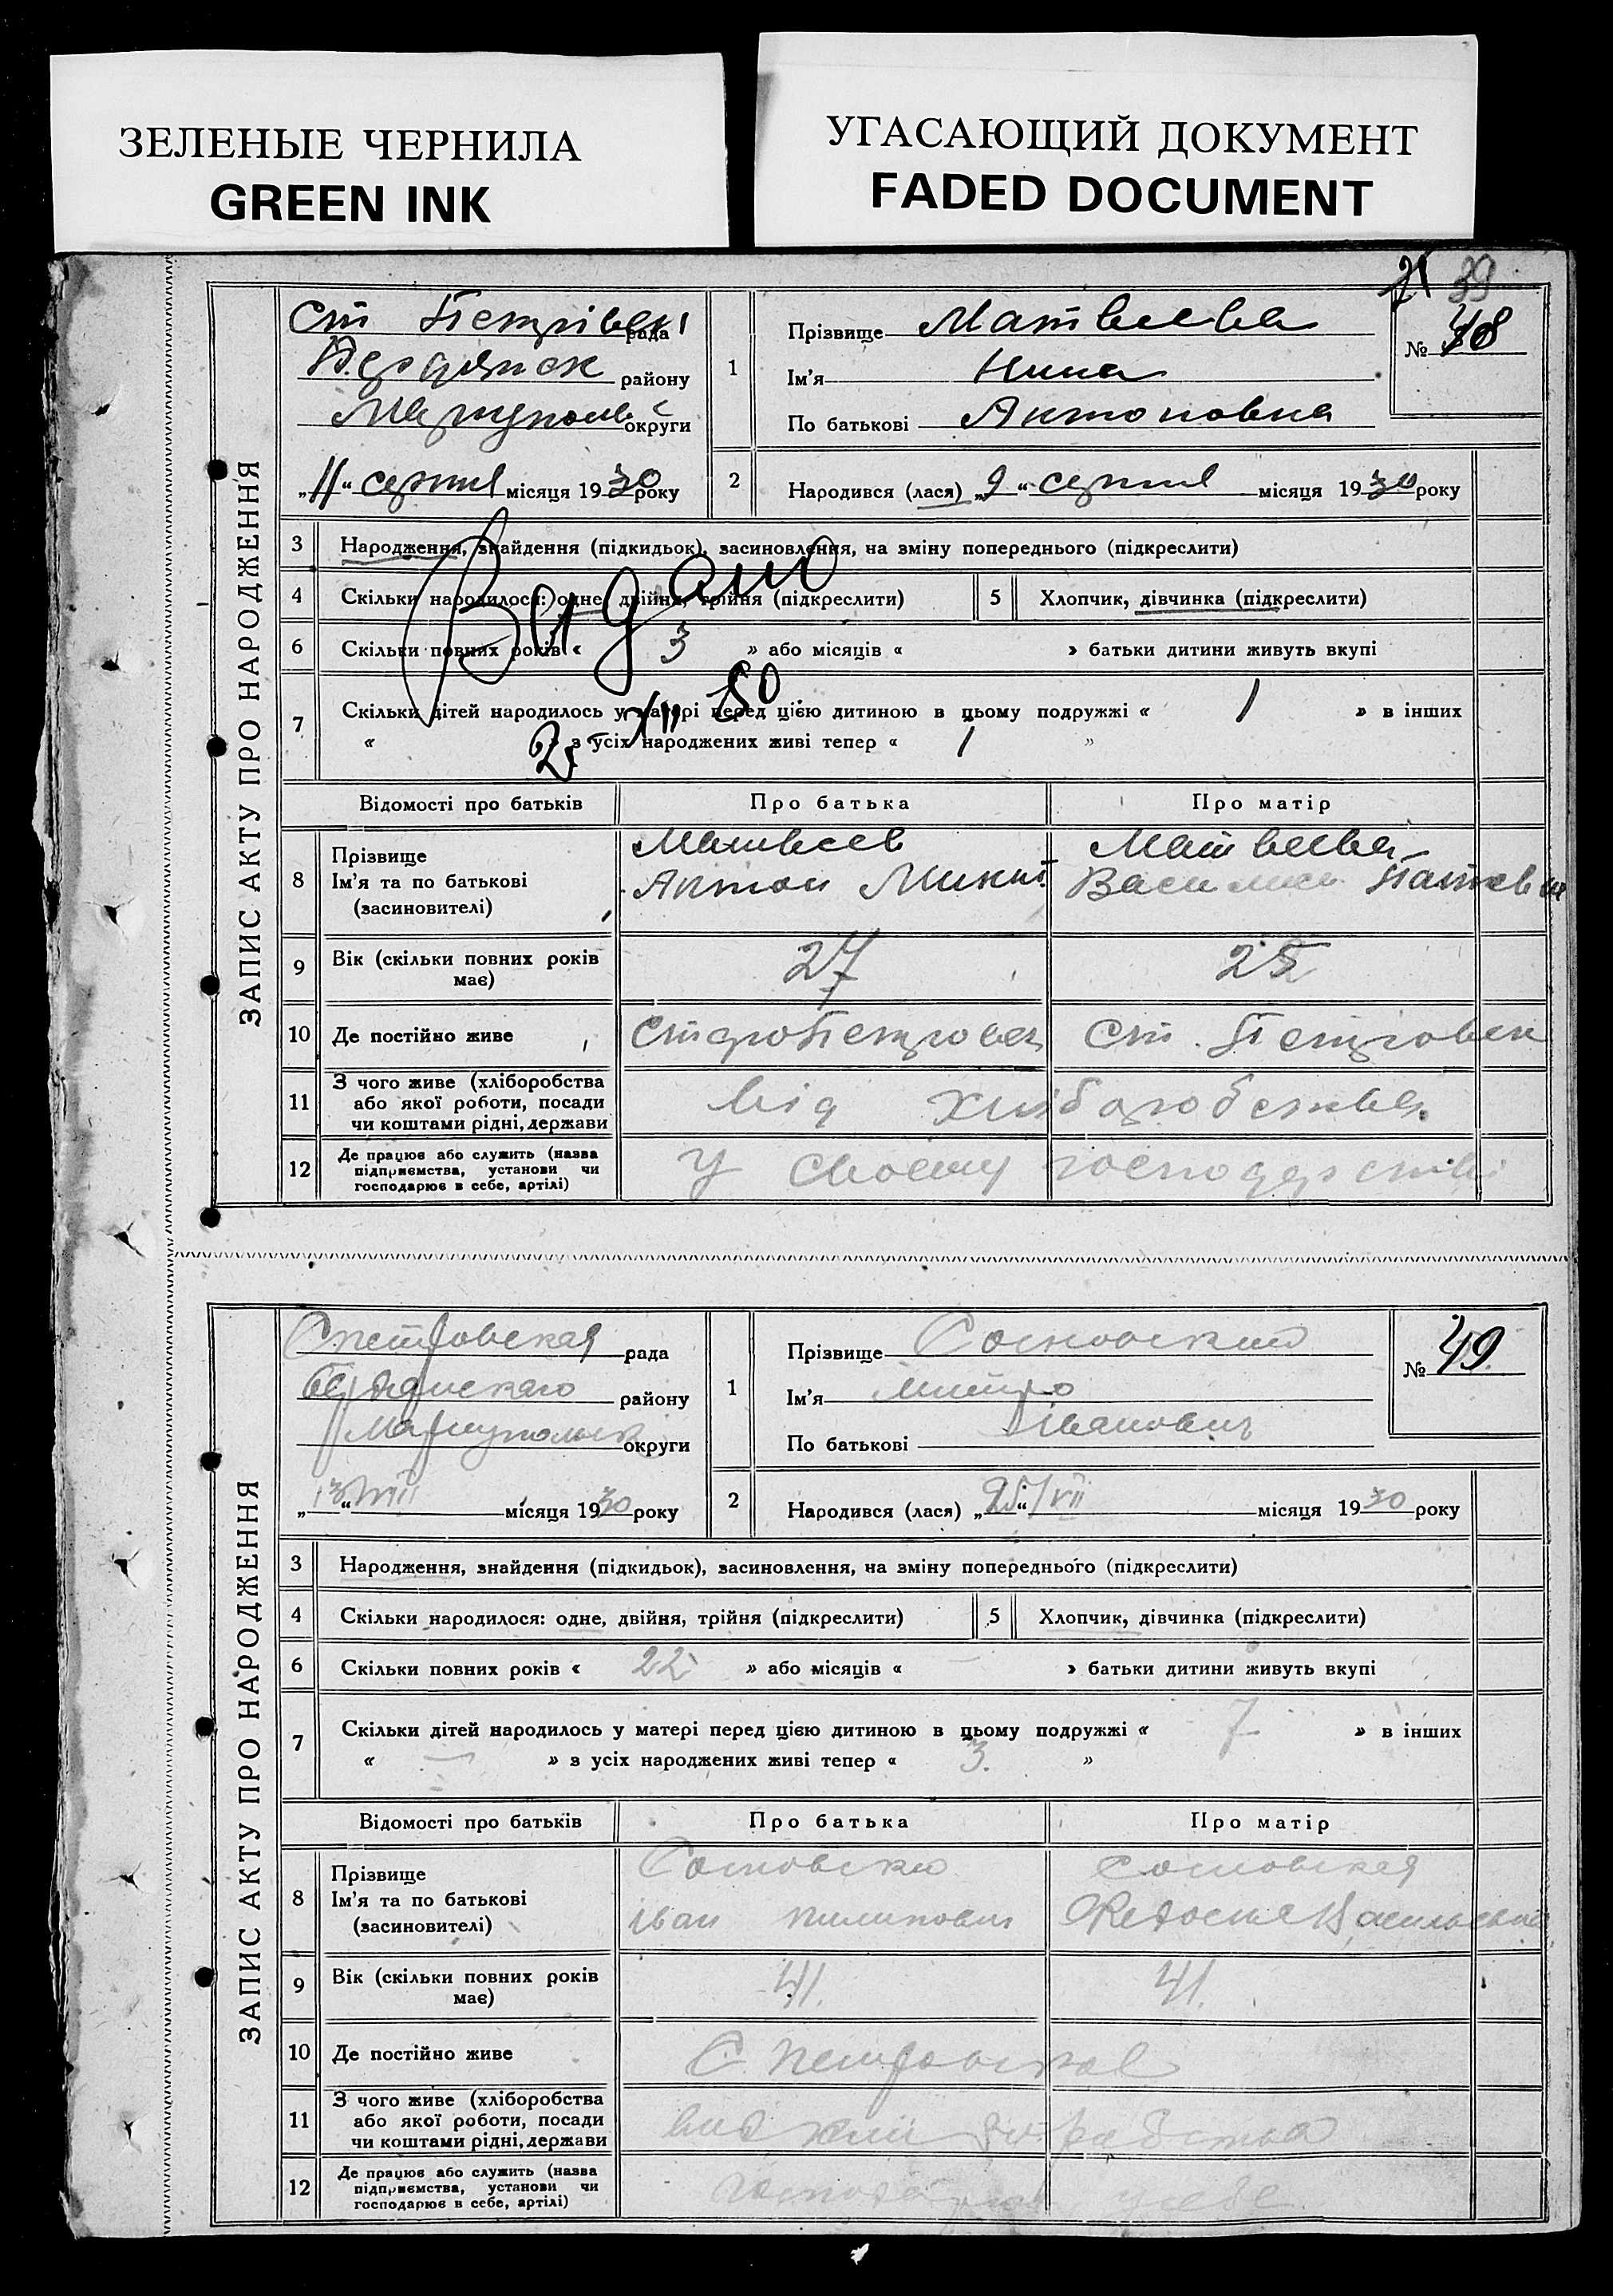 ЗЕЛЕНЫЕ ЧЕРНИЛА
GREEN INK
УГАСАЮЩИЙ ДОКУМЕНТ
FADED DOCUMENT
39
ЗАПИС АКТУ ПРО НАРОДЖЕННЯ
Ст Петрівск рада
Бердянск району
Маріуполь округи
„11“ серпня місяця 1930 року
1 Прізвище Матвеева
Ім'я Нина
По батькові Антоновна
№ 48
2 Народився (лася) „9“ серпня місяця 1930 року
3 Народження, знайдення (підкидьок), засиновлення, на зміну попереднього (підкреслити)
4 Скільки народилося: одне, двійня, трійня (підкреслити) 5 Хлопчик, дівчинка (підкреслити)
Видано
6 Скільки повних років « 3 » або місяців « » батьки дитини живуть вкупі
7 Скільки дітей народилось у матері перед цією дитиною в цьому подружжі « 1 » в інших
« » з усіх народжених живі тепер « 1 »
Відомості про батьків Про батька Про матір
8 Прізвище Матвеев Матвеева
Ім'я та по батькові Антон Микит. Василиса
(засиновителі)
9 Вік (скільки повних років має) 27 25
10 Де постійно живе Ст. Петровск
11 З чого живе (хліборобства або якої роботи, посади чи коштами рідні, держави від хліборобства
12 Де працює або служить (назва підприємства, установи чи господарює в себе, артілі) У своему господарстві
ЗАПИС АКТУ ПРО НАРОДЖЕННЯ
Спетровская рада
Бердянскаго району
Мариупольск округи
„13“ VIII місяця 1930 року
1 Прізвище Сосновский
Ім'я Митро
По батькові Іванович
№ 49
2 Народився (лася) „25“ VII місяця 1930 року
3 Народження, знайдення (підкидьок), засиновлення, на зміну попереднього (підкреслити)
4 Скільки народилося: одне, двійня, трійня (підкреслити) 5 Хлопчик, дівчинка (підкреслити)
6 Скільки повних років « 22 » або місяців « — » батьки дитини живуть вкупі
7 Скільки дітей народилось у матері перед цією дитиною в цьому подружжі « 7 » в інших
« — » з усіх народжених живі тепер « 3. »
Відомості про батьків Про батька Про матір
8 Прізвище Сосновский Сосновская
Ім'я та по батькові Іван Пилипович Федосия Васильевна
(засиновителі)
9 Вік (скільки повних років має) 41. 41.
10 Де постійно живе С. Петровская
11 З чого живе (хліборобства або якої роботи, посади чи коштами рідні, держави
12 Де працює або служить (назва підприємства, установи чи господарює в себе, артілі)